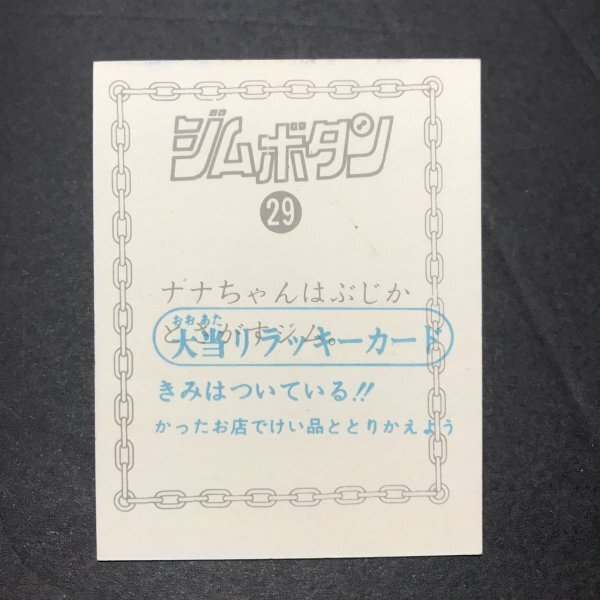 ジムボタン
29
ナナちゃんはぶじか
とさがすジム。
おおあた
大当りラッキーカード
きみはついている!!
かったお店でけい品ととりかえよう